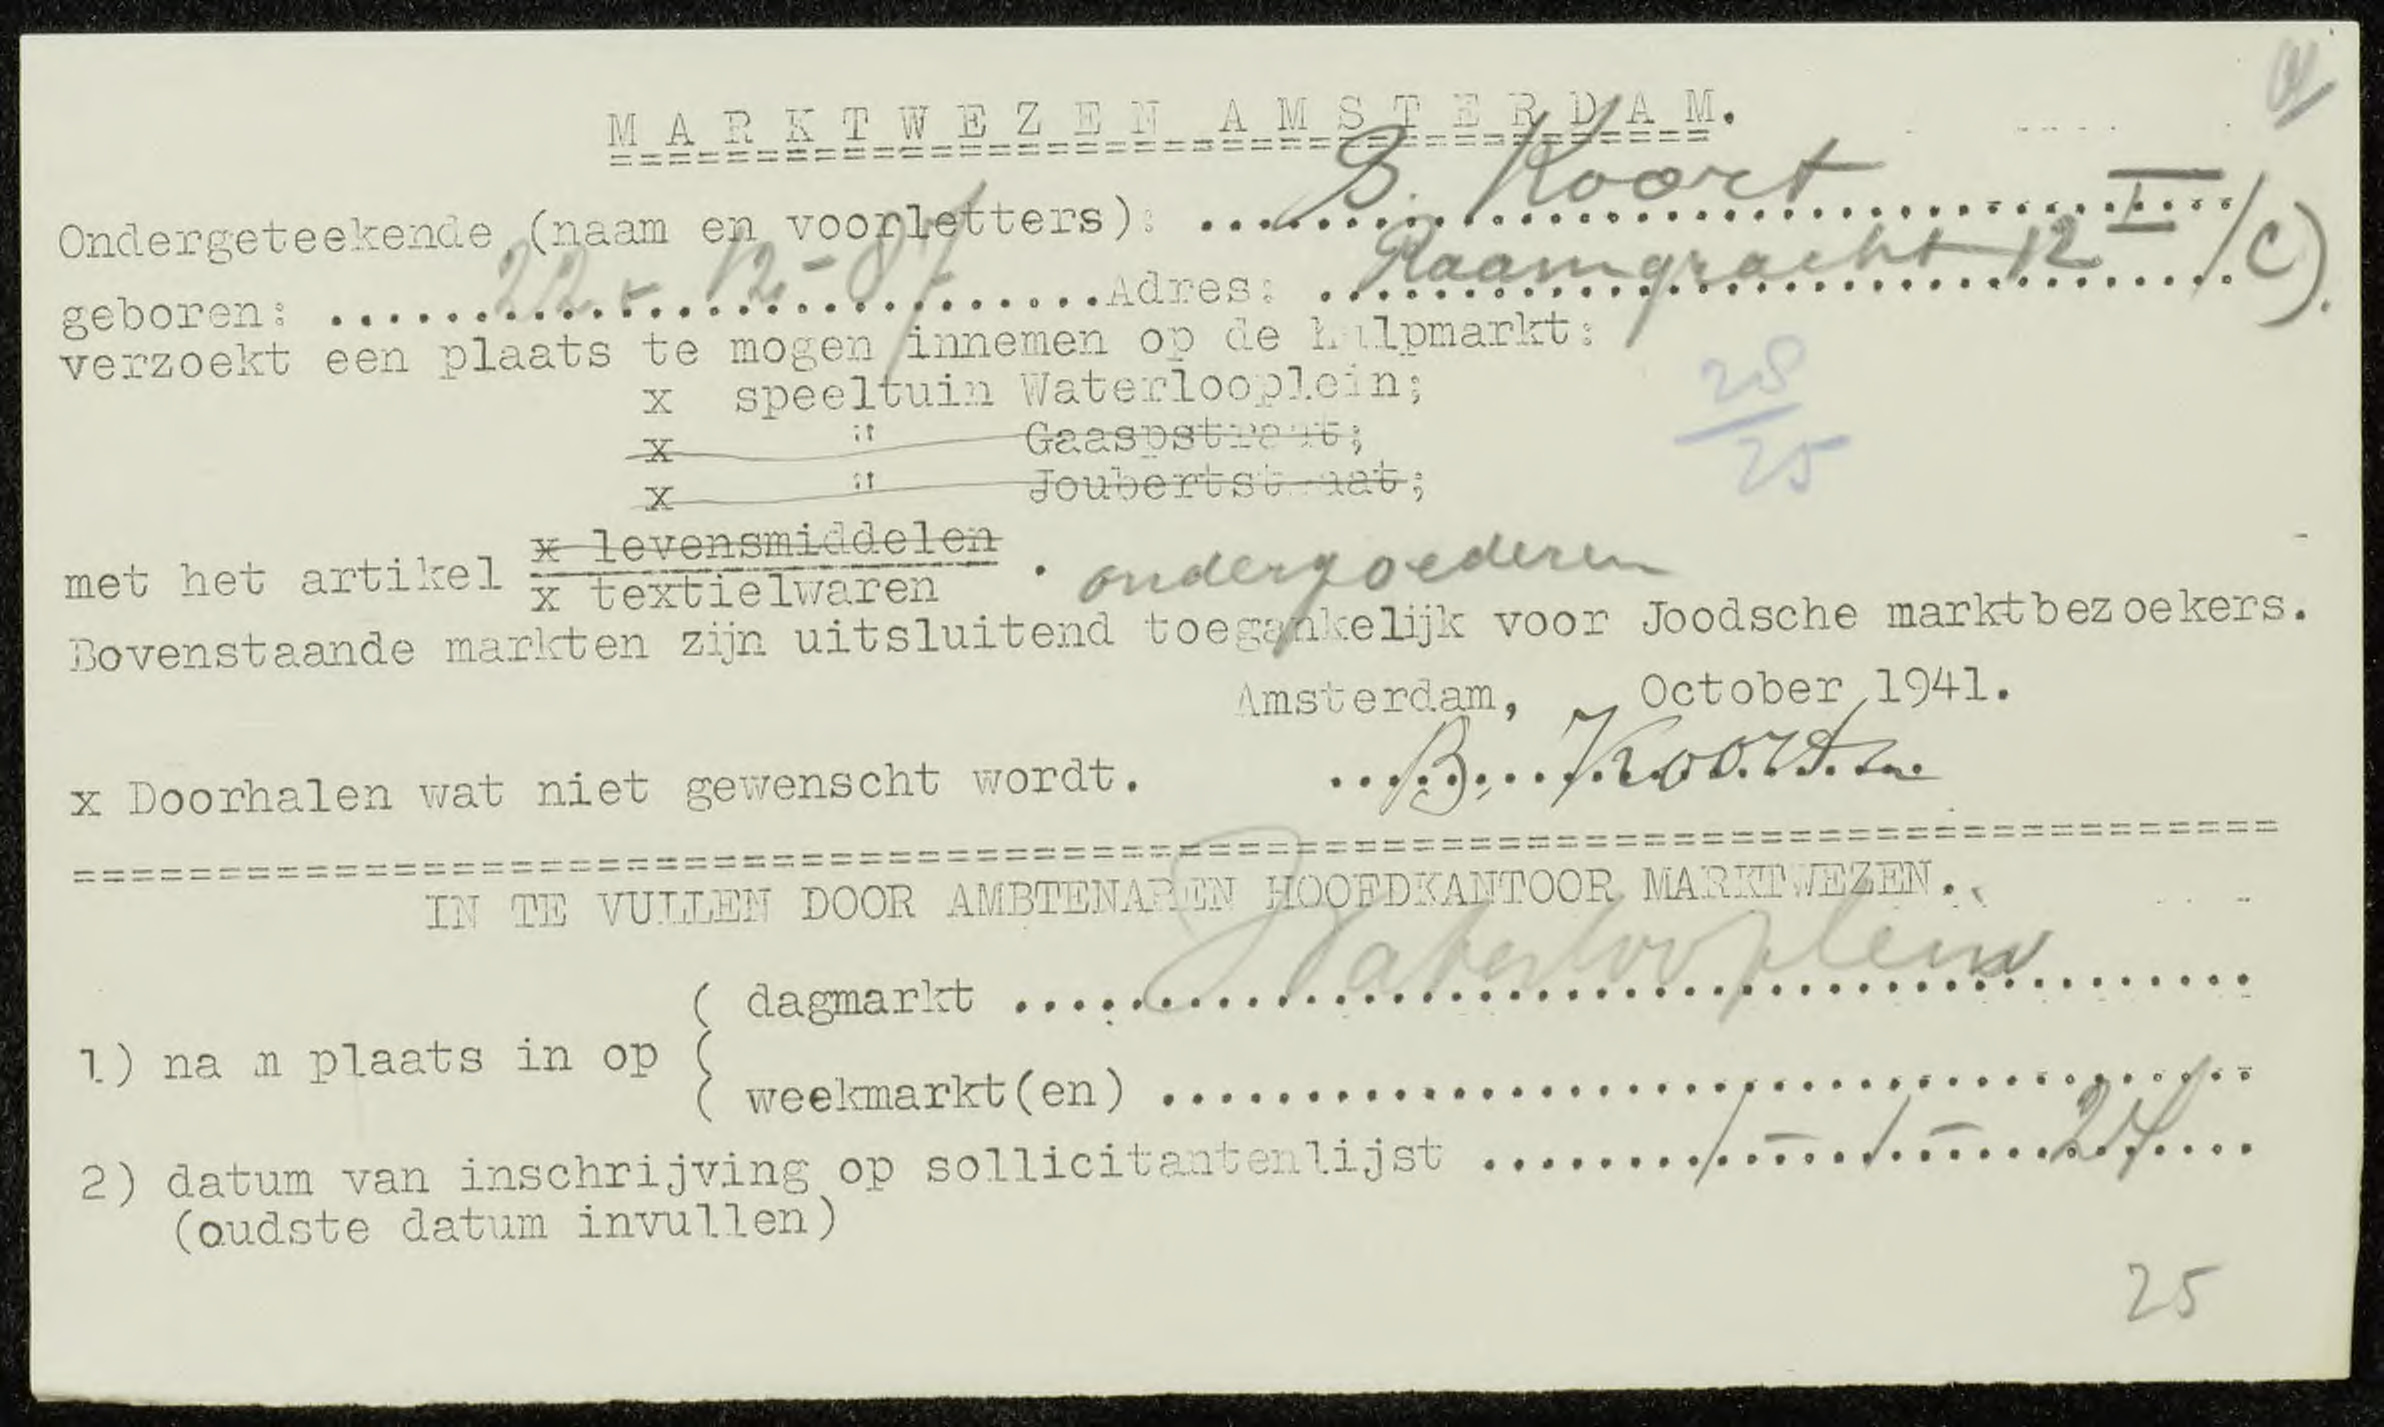 MARKTWEZEN AMSTERDAM.
Ondergeteekende (naam en voorletters): B. Koort
geboren: 22-12-87 Adres: Raamgracht 12 I /C).
verzoekt een plaats te mogen innemen op de hulpmarkt:
x speeltuin Waterlooplein;
x " Gaaspstraat;
x " Joubertstraat;
28/25
x levensmiddelen
met het artikel x textielwaren . ondergoederen
Bovenstaande markten zijn uitsluitend toegankelijk voor Joodsche marktbezoekers.
Amsterdam, October 1941.
x Doorhalen wat niet gewenscht wordt. B. Koort
IN TE VULLEN DOOR AMBTENAREN HOOFDKANTOOR MARKTWEZEN.
( dagmarkt Waterlooplein
1) na m plaats in op (
( weekmarkt(en)
2) datum van inschrijving op sollicitantenlijst 1-1-24
(oudste datum invullen)
25